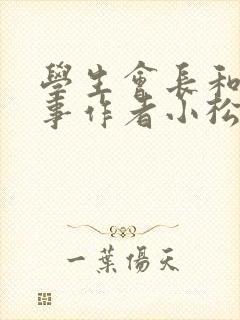 學生會長和
事作者小松
一葉傷天